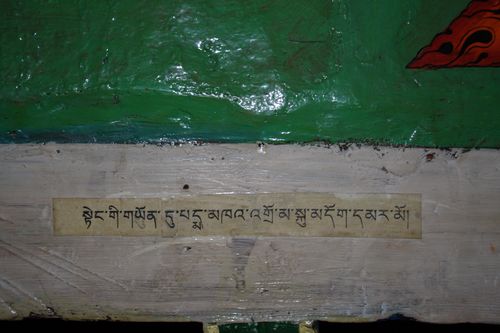 སྟེང་གི་གཡོན་ དུ་པདྨ་མཁའ་འགྲོ་མ་སྐུ་མདོག་དམར་མོ།